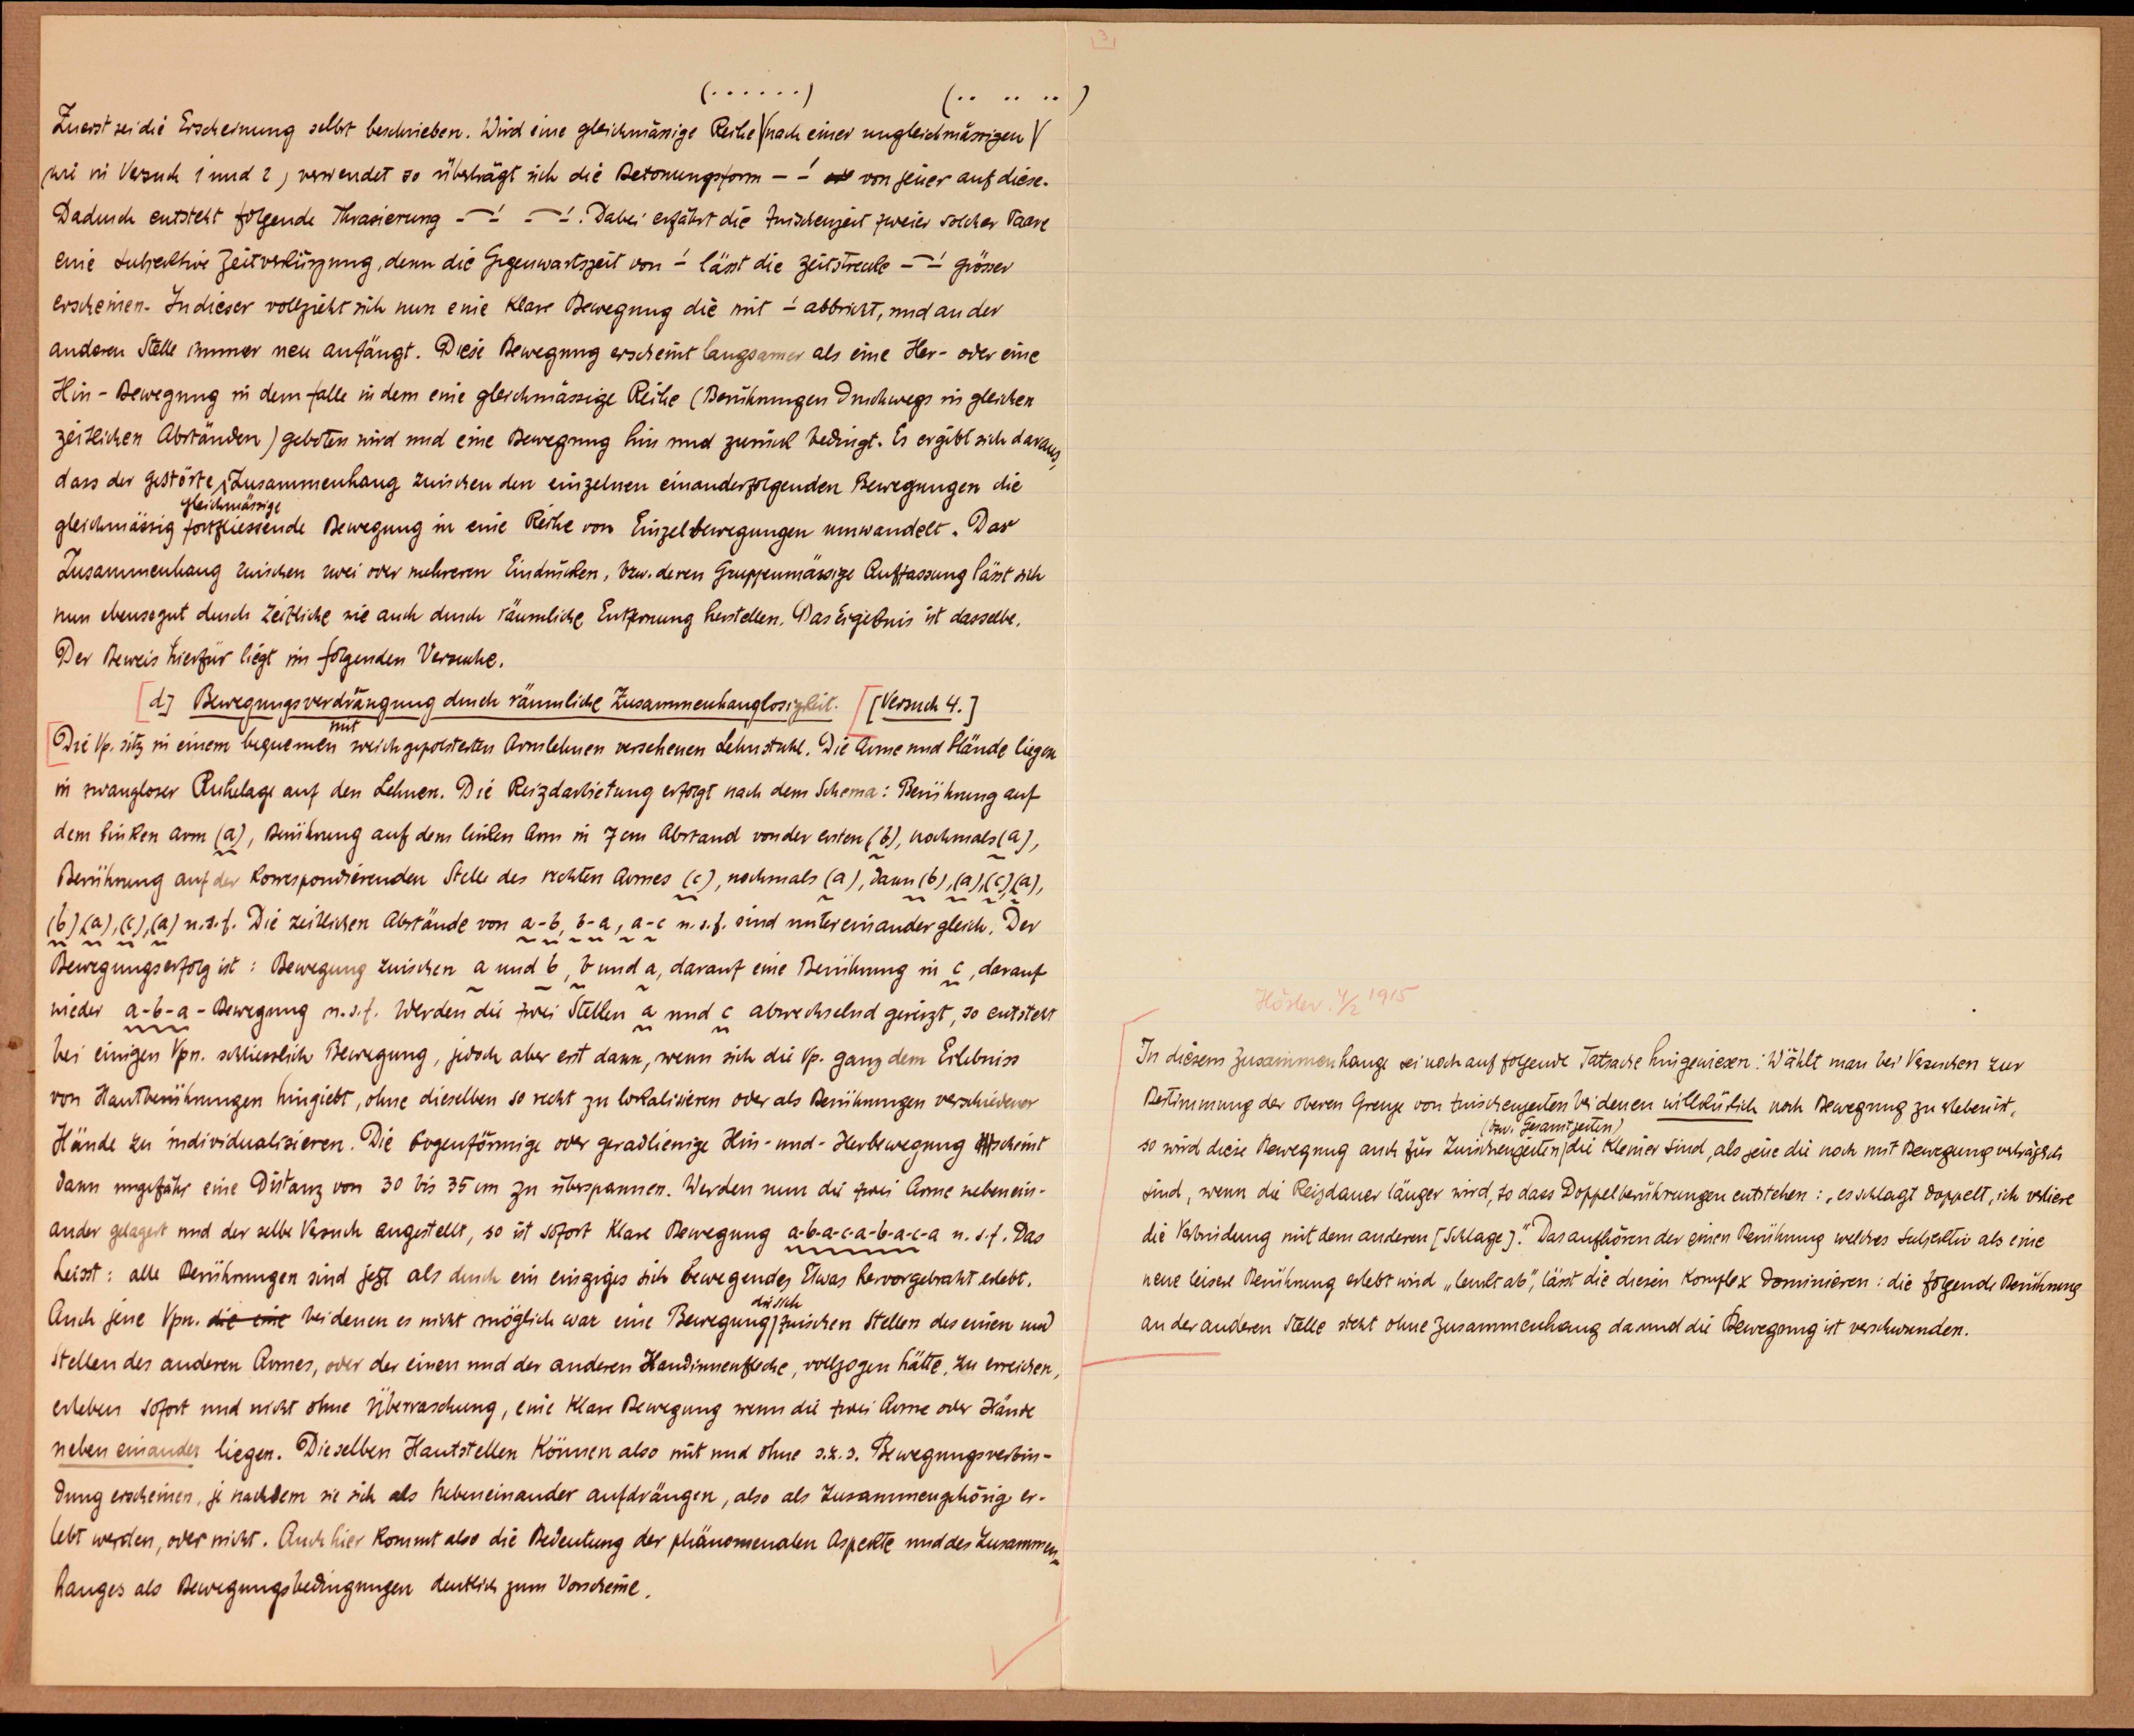 3
(. . . . . .) (. .  . .  . .)
Zuerst sei die Erscheinung selbst beschrieben. Wird eine gleichmässige Reihe √ nach einer ungleichmässigen √
(wie in Versuch 1 und 2) verwendet so überträgt sich die Betonungsform – –́ von jener auf diese.
Dadurch entsteht folgende Phrasierung –⁀–́ –⁀–́. Dabei erfährt die Zwischenzeit zweier solcher Paare
eine subjektive Zeitverkürzung, denn die Gegenwartszeit von –́ lässt die Zeitstrecke –⁀–́ grösser
erscheinen. In dieser vollzieht sich nun eine klare Bewegung die mit –́ abbricht, und an der
anderen Stelle immer neu anfängt. Diese Bewegung erscheint langsamer als eine Her- oder eine
Hin-Bewegung in dem Falle in dem eine gleichmässige Reihe (Berührungen durchwegs in gleichen
zeitlichen Abständen) geboten wird und eine Bewegung hin und zurück bedingt. Es ergibt sich daraus,
dass der gestörte Zusammenhang zwischen den einzelnen einanderfolgenden Bewegungen die
gleichmässige
gleichmässig fortfliessende Bewegung in eine Reihe von Einzelbewegungen umwandelt. Der
Zusammenhang zwischen zwei oder mehreren Eindrücken, bzw. deren Gruppenmässige Auffassung lässt sich
nun ebensogut durch zeitliche wie auch durch räumliche Entfernung herstellen. Das Ergebnis ist dasselbe.
Der Beweis hierfür liegt im folgenden Versuche.
[d] Bewegungsverdrängung durch räumliche Zusammenhanglosigkeit. [Versuch 4.]
mit
Die Vp. sitz in einem bequemen weichgepolsterten Armlehnen versehenen Lehnstuhl. Die Arme und Hände liegen
in zwangloser Ruhelage auf den Lehnen. Die Reizdarbietung erfolgt nach dem Schema: Berührung auf
dem linken Arm (a), Berührung auf dem linken Arm in 7 cm Abstand von der ersten (b), nochmals (a),
Berührung auf der korrespondierenden Stelle des rechten Armes (c), nochmals (a), dann (b), (a), (c), (a),
(b), (a), (c), (a) u.s.f. Die zeitlichen Abstände von a-b, b-a, a-c u.s.f. sind untereinander gleich. Der
Bewegungserfolg ist: Bewegung zwischen a und b, b und a, darauf eine Berührung in c, darauf
wieder a-b-a-Bewegung u.s.f. Werden die zwei Stellen a und c abwechselnd gereizt, so entsteht
bei einigen Vpn. schliesslich Bewegung, jedoch aber erst dann, wenn sich die Vp. ganz dem Erlebniss
von Hautberührungen hingiebt, ohne dieselben so recht zu lokalisieren oder als Berührungen verschiedener
Hände zu individualisieren. Die bogenförmige oder geradlienige Hin-und-Herbewegung scheint
dann ungefähr eine Distanz von 30 bis 35 cm zu überspannen. Werden nun die zwei Arme nebenein-
ander gelagert und der selbe Versuch angestellt, so ist sofort klare Bewegung a-b-a-c-a-b-a-c-a u.s.f. Das
heisst: alle Berührungen sind jetzt als durch ein einziges sich bewegendes Etwas hervorgebracht erlebt.
die sich
Auch jene Vpn. die eine bei denen es nicht möglich war eine Bewegung zwischen Stellen des einen und
Stellen des anderen Armes, oder der einen und der anderen Handinnenfläche, vollzogen hätte, zu erreichen,
erleben sofort und nicht ohne Überraschung, eine klare Bewegung wenn die zwei Arme oder Hände
neben einander liegen. Dieselben Hautstellen können also mit und ohne s.z.s. Bewegungsverbin-
dung erscheinen, je nachdem sie sich als Nebeneinander aufdrängen, also als zusammengehörig er-
lebt werden, oder nicht. Auch hier kommt also die Bedeutung der phänomenalen Aspekte und des Zusammen-
hanges als Bewegungsbedingungen deutlich zum Vorscheine.
4/2 1915
In diesem Zusammenhange sei noch auf folgende Tatsache hingewiesen: Wählt man bei Versuchen zur
Bestimmung der oberen Grenze von Zwischenzeiten bei denen willkürlich noch Bewegung zu erleben ist,
(bzw. Gesamtzeiten)
so wird diese Bewegung auch für Zwischenzeiten die kleiner sind, als jene die noch mit Bewegung verträglich
sind, wenn die Reizdauer länger wird, so dass Doppelberührungen entstehen: „es schlagt doppelt, ich verliere
die Verbindung mit dem anderen [Schlage]“. Das aufhören der einen Berührung welches subjektiv als eine
neue leisere Berührung erlebt wird „lenkt ab“, lässt die diesen Komplex dominieren: die folgende Berührung
an der anderen Stelle steht ohne Zusammenhang da und die Bewegung ist verschwunden.